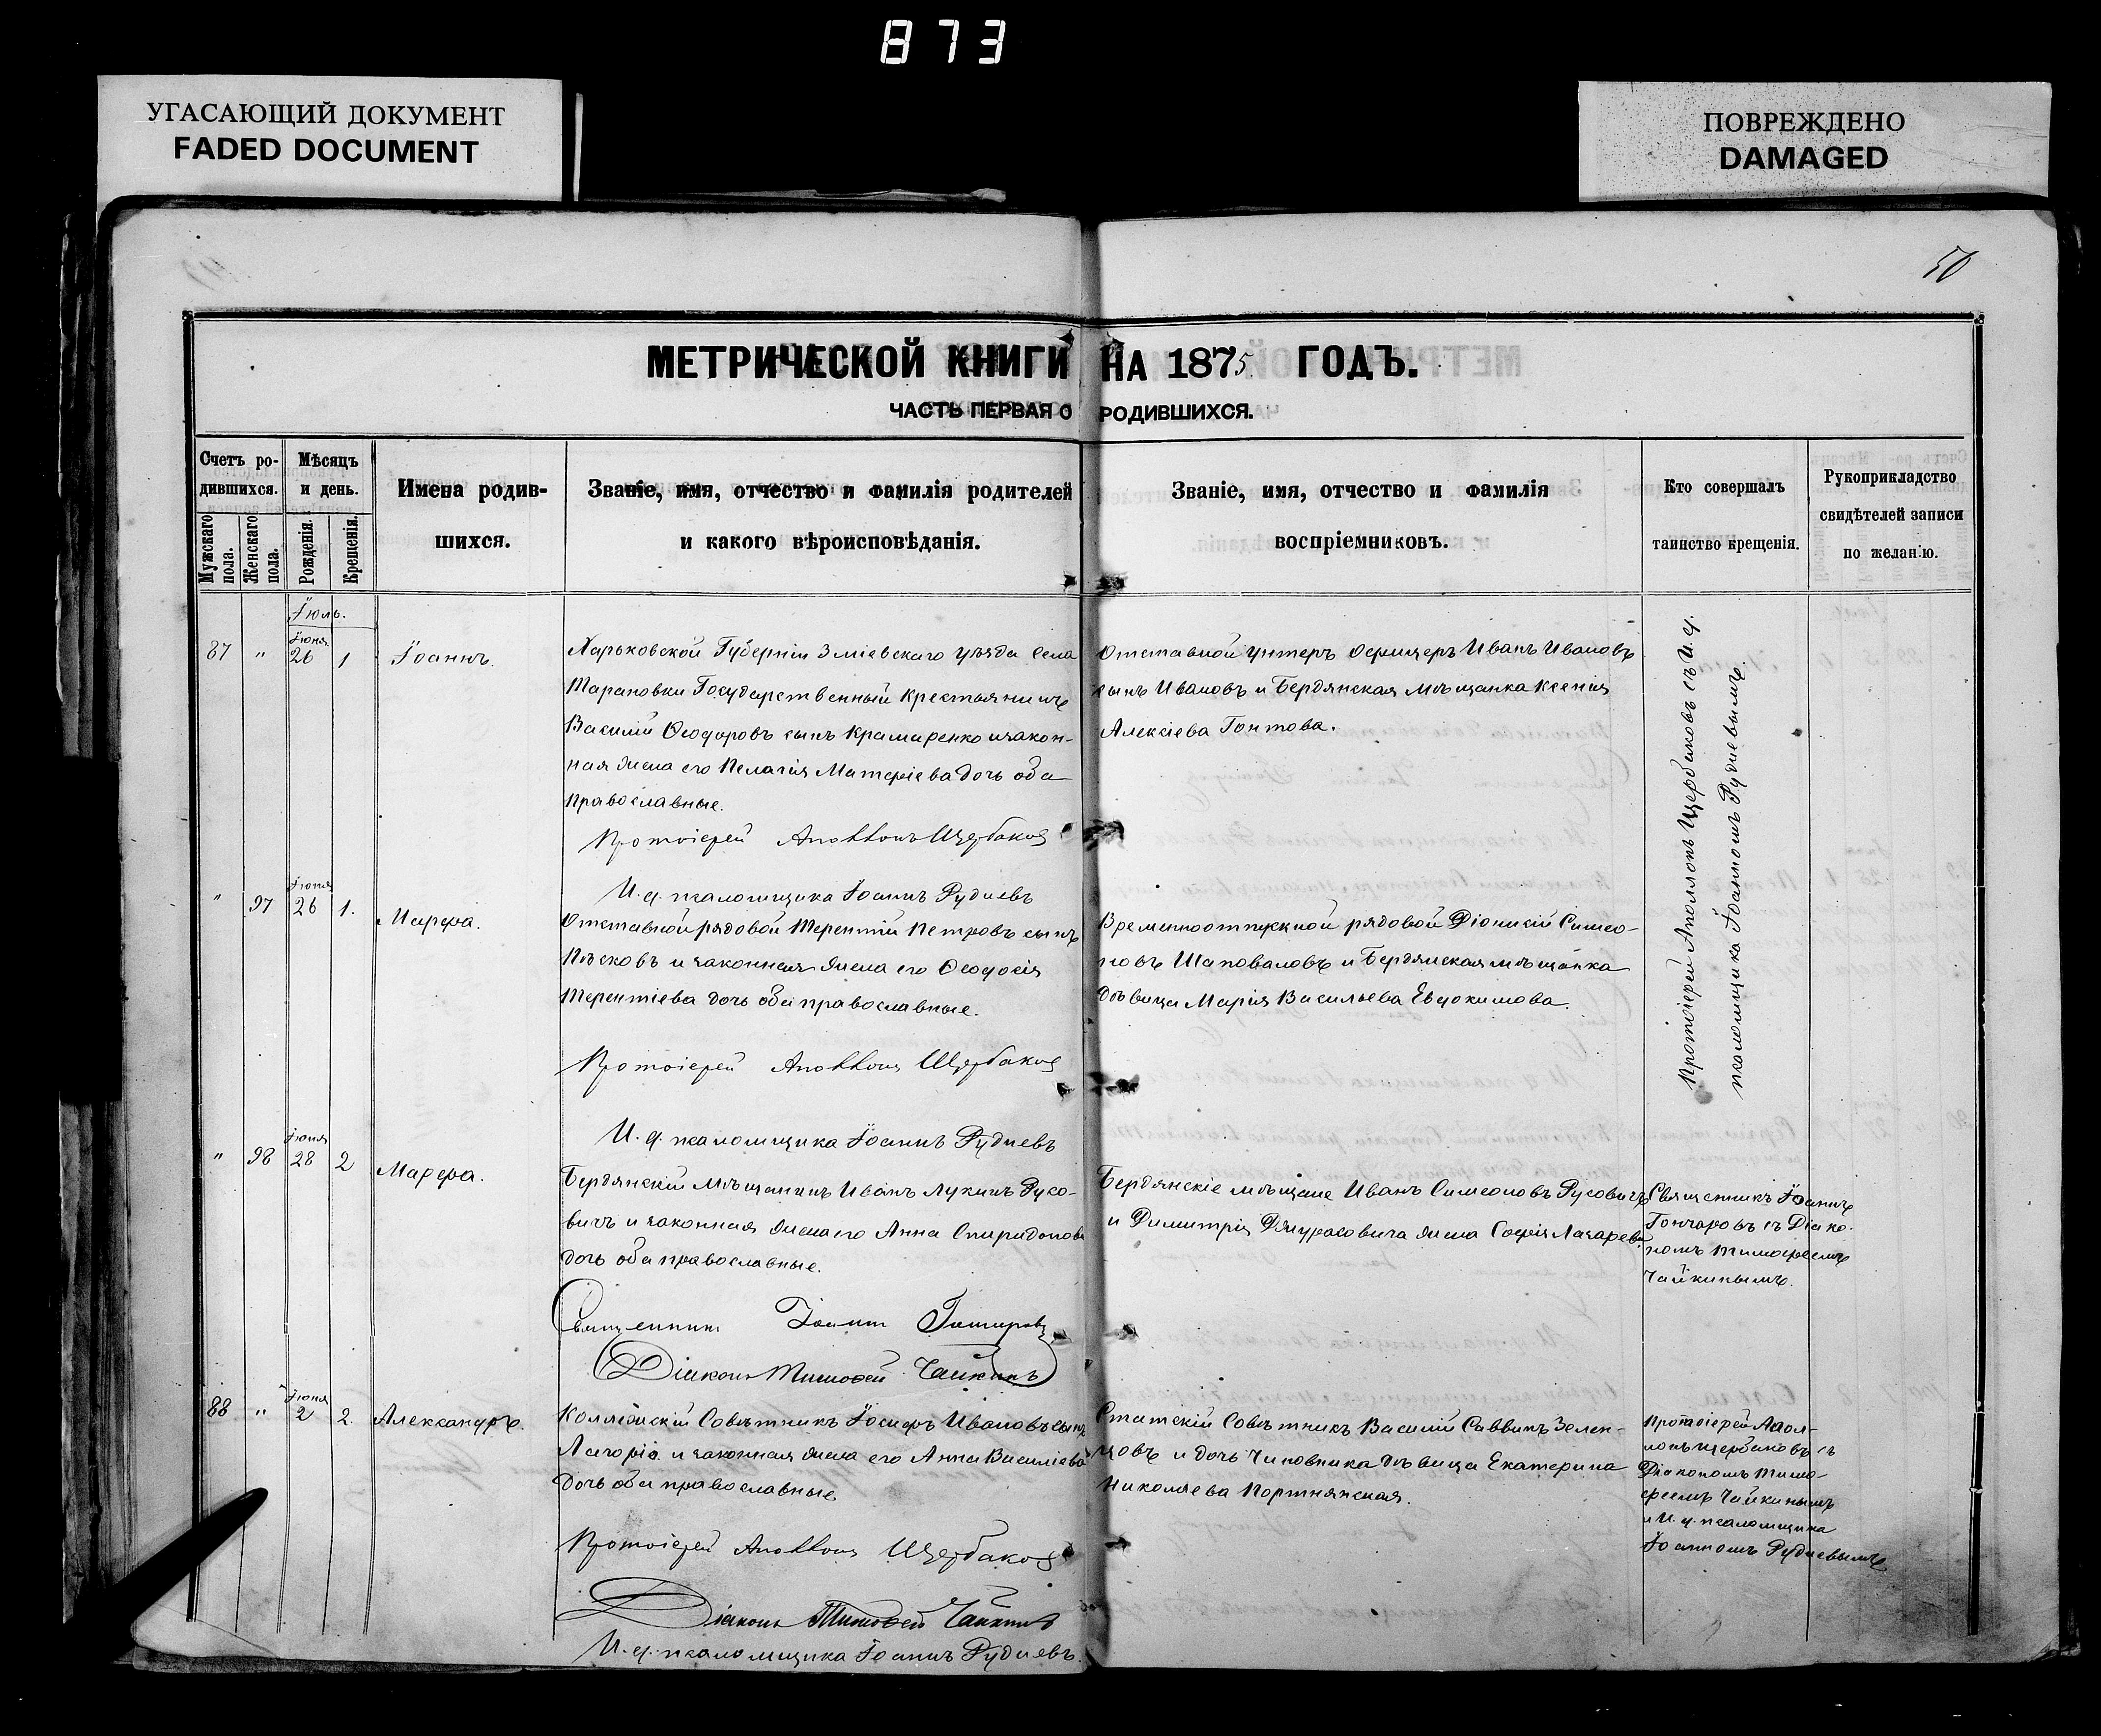 873
УГАСАЮЩИЙ ДОКУМЕНТ
FADED DOCUMENT
ПОВРЕЖДЕНО
DAMAGED
50
МЕТРИЧЕСКОЙ КНИГИ НА 1875 ГОДЪ.
ЧАСТЬ ПЕРВАЯ О РОДИВШИХСЯ.
Счетъ ро-
дившихся.
Мужскаго пола.
Женскаго пола.
Мѣсяцъ
и день.
Рожденія.
Крещенія.
Имена родив-
шихся.
Званіе, имя, отчество и фамилія родителей
и какого вѣроисповѣданія.
Званіе, имя, отчество и фамилія
воспріемниковъ.
Кто совершалъ
таинство крещенія.
Рукоприкладство
свидѣтелей записи
по желанію.
Іюль.
87 " Іюня 26 1 Іоаннъ.
Харьковской Губерніи Зміевскаго уѣзда Села
Тарановки Государственный крестьянинъ
Василій Ѳеодоровъ сынъ Крамаренко и закон-
ная жена его Пелагія Матѳіева дочь оба
православные.
Протоіерей Аполлонъ Щербаковъ
И. д. псаломщика Іоаннъ Рудневъ
Отставной унтеръ офицеръ Иванъ Ивановъ
сынъ Ивановъ и Бердянская мѣщанка Ксенія
Алексіева Гонтова.
Протоіерей Аполлонъ Щербаковъ съ И. д.
псаломщика Іоанномъ Рудневымъ.
" 97 Іюня 26 1. Марфа.
Отставной рядовой Терентій Петровъ сынъ
Пѣсковъ и законная жена его Ѳеодосія
Терентіева дочь оба православные.
Протоіерей Аполлонъ Щербаковъ
И. д. псаломщика Іоаннъ Рудневъ
Временноотпускной рядовой Діонисій Симео-
новъ Шаповаловъ и Бердянская мѣщанка
дѣвица Марія Васильева Евдокимова.
" 98 Іюня 28 2 Марфа.
Бердянскій мѣщанинъ Иванъ Лукинъ Русо-
вичъ и законная жена его Анна Спиридонова
дочь оба православные.
Священникъ Іоаннъ Гончаровъ
Діаконъ Тимоѳей Чайкинъ
Бердянскіе мѣщане Иванъ Симеоновъ Русовичъ
и Димитрія Джурасовича жена Софія Лазарева.
Священникъ Іоаннъ
Гончаровъ съ Діако-
номъ Тимофеемъ
Чайкинымъ.
88 " Іюня 2 2. Александръ.
Коллежскій Совѣтникъ Іосифъ Ивановъ сынъ
Лагоріо и законная жена его Анна Василіева
дочь оба православные
Протоіерей Аполлонъ Щербаковъ
Діаконъ Тимоѳей Чайкинъ
И. д. псаломщика Іоаннъ Рудневъ.
Статскій Совѣтникъ Василій Саввинъ Зелен-
цовъ и дочь Чиновника дѣвица Екатерина
Николаева Портнянская.
Протоіерей Апол-
лонъ Щербаковъ съ
Діакономъ Тимо-
феемъ Чайкинымъ
и И. д. псаломщика
Іоанномъ Рудневымъ